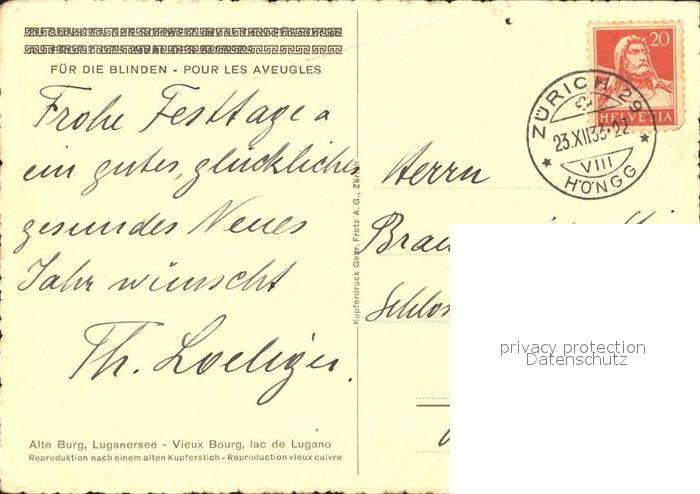 FÜR DIE BLINDEN - POUR LES AVEUGLES
Frohe Festtage &
ein gutes, glückliches
gesundes Neues
Jahr wünscht
Th. Loeliger.
Alte Burg, Luganersee - Vieux Bourg, lac de Lugano
Reproduktion nach einem alten Kupferstich - Reproduction vieux cuivre
Kupferdruck Gebr. Fretz A. G., Zürich
20
HELVETIA
ZÜRICH 29
23.XII33-22
VIII
HÖNGG
Herrn
privacy protection
Datenschutz